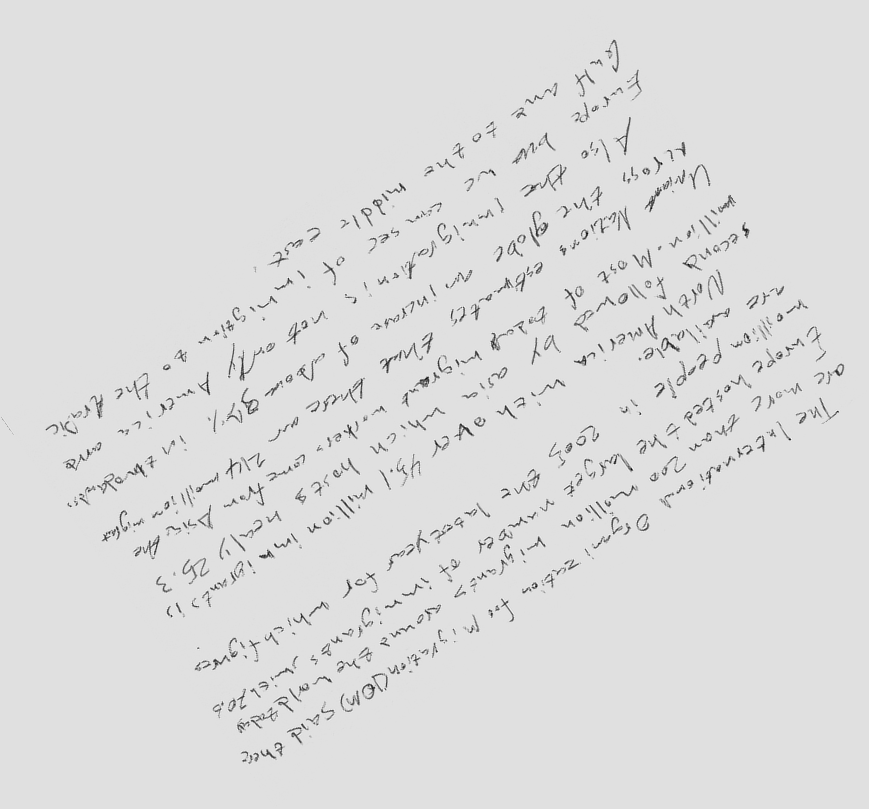 The International Organization for Migration(IOM) said there
are more than 200 million migrants around the world today
Europe hosted the largest number of immigrants, with 70.6
million people in 2005 the latest year for which figures
are available.
North America with over 45.1 million immigrants is
second followed by asia which hosts nearly 25.3
million. Most of todays migrant workers come from Asia. the
Nations estimates that there are 214 million migrant
across the globe an increase of above 37% in twodecades.
Also the Immigration is not only America and
Europe but we can see of immigration to the Arabic
Gulf and to the middle east.